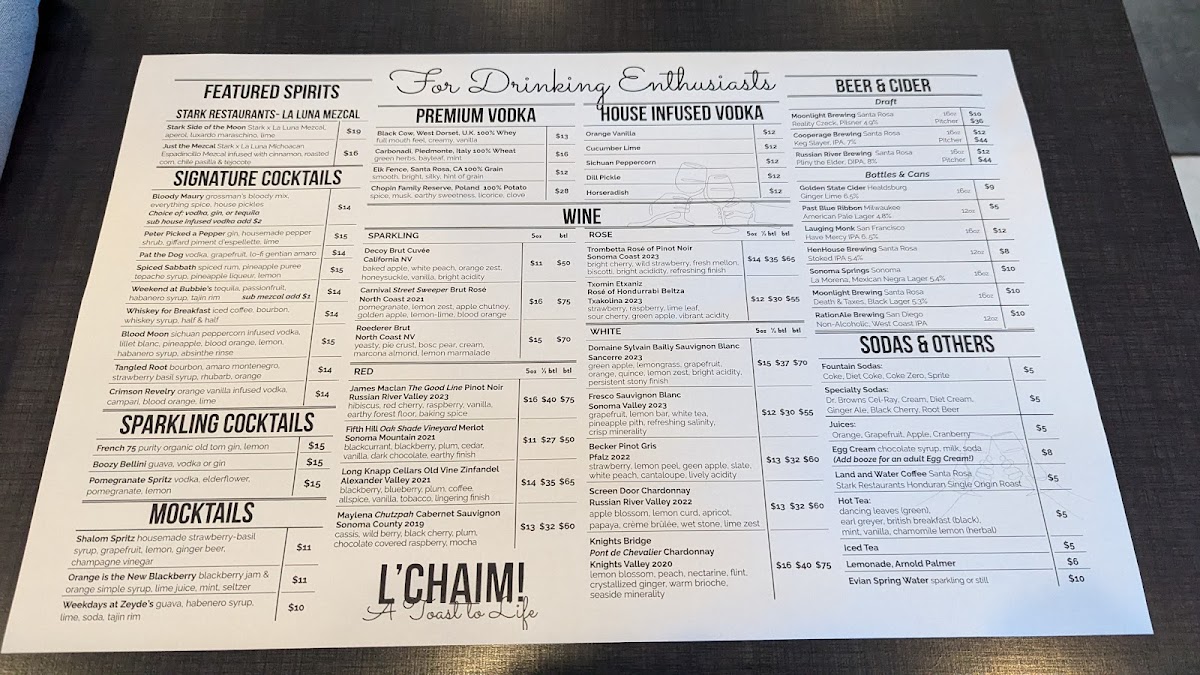 For Drinking Enthusiasts
FEATURED SPIRITS
STARK RESTAURANTS- LA LUNA MEZCAL
Stark Side of the Moon Stark x La Luna Mezcal,
aperol, luxardo maraschino, lime
$19
Just the Mezcal Stark x La Luna Michoacan
Espadincillo Mezcal infused with cinnamon, roasted
corn, chile pasilla & tejocote
$16
SIGNATURE COCKTAILS
Bloody Maury grossman's bloody mix,
everything spice, house pickles
Choice of: vodka, gin, or tequila
sub house infused vodka add $2
$14
Peter Picked a Pepper gin, housemade pepper
shrub, giffard piment d'espellette, lime
$15
Pat the Dog vodka, grapefruit, lo-fi gentian amaro
$14
Spiced Sabbath spiced rum, pineapple puree
tepache syrup, pineapple liqueur, lemon
$15
Weekend at Bubbie's tequila, passionfruit,
habanero syrup, tajin rim sub mezcal add $1
$14
Whiskey for Breakfast iced coffee, bourbon,
whiskey syrup, half & half
$14
Blood Moon sichuan peppercorn infused vodka,
lillet blanc, pineapple, blood orange, lemon,
habanero syrup, absinthe rinse
$15
Tangled Root bourbon, amaro montenegro,
strawberry basil syrup, rhubarb, orange
$14
Crimson Revelry orange vanilla infused vodka,
campari, blood orange, lime
$14
SPARKLING COCKTAILS
French 75 purity organic old tom gin, lemon
$15
Boozy Bellini guava, vodka or gin
$15
Pomegranate Spritz vodka, elderflower,
pomegranate, lemon
$15
MOCKTAILS
Shalom Spritz housemade strawberry-basil
syrup, grapefruit, lemon, ginger beer,
champagne vinegar
$11
Orange is the New Blackberry blackberry jam &
orange simple syrup, lime juice, mint, seltzer
$11
Weekdays at Zeyde's guava, habenero syrup,
lime, soda, tajin rim
$10
PREMIUM VODKA
Black Cow, West Dorset, U.K. 100% Whey
full mouth feel, creamy, vanilla
$13
Carbonadi, Piedmonte, Italy 100% Wheat
green herbs, bayleaf, mint
$16
Elk Fence, Santa Rosa, CA 100% Grain
smooth, bright, silky, hint of grain
$12
Chopin Family Reserve, Poland 100% Potato
spice, musk, earthy sweetness, licorice, clove
$28
HOUSE INFUSED VODKA
Orange Vanilla
$12
Cucumber Lime
$12
Sichuan Peppercorn
$12
Dill Pickle
$12
Horseradish
$12
WINE
SPARKLING 5oz btl
Decoy Brut Cuvée
California NV
baked apple, white peach, orange zest,
honeysuckle, vanilla, bright acidity
$11 $50
Carnival Street Sweeper Brut Rosé
North Coast 2021
pomegranate, lemon zest, apple chutney,
golden apple, lemon-lime, blood orange
$16 $75
Roederer Brut
North Coast NV
yeasty, pie crust, bosc pear, cream,
marcona almond, lemon marmalade
$15 $70
RED 5oz ½ btl btl
James Maclan The Good Line Pinot Noir
Russian River Valley 2023
hibiscus, red cherry, raspberry, vanilla,
earthy forest floor, baking spice
$16 $40 $75
Fifth Hill Oak Shade Vineyard Merlot
Sonoma Mountain 2021
blackcurrant, blackberry, plum, cedar,
vanilla, dark chocolate, earthy finish
$11 $27 $50
Long Knapp Cellars Old Vine Zinfandel
Alexander Valley 2021
blackberry, blueberry, plum, coffee,
allspice, vanilla, tobacco, lingering finish
$14 $35 $65
Maylena Chutzpah Cabernet Sauvignon
Sonoma County 2019
cassis, wild berry, black cherry, plum,
chocolate covered raspberry, mocha
$13 $32 $60
L'CHAIM!
A Toast to Life
ROSE 5oz ½ btl btl
Trombetta Rosé of Pinot Noir
Sonoma Coast 2023
bright cherry, wild strawberry, fresh mellon,
biscotti, bright acidity, refreshing finish
$14 $35 $65
Txomin Etxaniz
Rosé of Hondurrabi Beltza
Txakolina 2023
strawberry, raspberry, lime leaf,
sour cherry, green apple, vibrant acidity
$12 $30 $55
WHITE 5oz ½ btl btl
Domaine Sylvain Bailly Sauvignon Blanc
Sancerre 2023
green apple, lemongrass, grapefruit,
orange, quince, lemon zest, bright acidity,
persistent stony finish
$15 $37 $70
Fresco Sauvignon Blanc
Sonoma Valley 2023
grapefruit, lemon bar, white tea,
pineapple pith, refreshing salinity,
crisp minerality
$12 $30 $55
Becker Pinot Gris
Pfalz 2022
strawberry, lemon peel, geen apple, slate,
white peach, cantaloupe, lively acidity
$13 $32 $60
Screen Door Chardonnay
Russian River Valley 2022
apple blossom, lemon curd, apricot,
papaya, crème brûlée, wet stone, lime zest
$13 $32 $60
Knights Bridge
Pont de Chevalier Chardonnay
Knights Valley 2020
lemon blossom, peach, nectarine, flint,
crystallized ginger, warm brioche,
seaside minerality
$16 $40 $75
BEER & CIDER
Draft
Moonlight Brewing Santa Rosa 16oz $10
Reality Czeck, Pilsner 4.9% Pitcher $36
Cooperage Brewing Santa Rosa 16oz $12
Keg Slayer, IPA, 7% Pitcher $44
Russian River Brewing Santa Rosa 16oz $12
Pliny the Elder, DIPA, 8% Pitcher $44
Bottles & Cans
Golden State Cider Healdsburg
Ginger Lime 6.5%
16oz $9
Past Blue Ribbon Milwaukee
American Pale Lager 4.8%
12oz $5
Lauging Monk San Francisco
Have Mercy IPA 6. 5%
16oz $12
HenHouse Brewing Santa Rosa
Stoked IPA 5.4%
12oz $8
Sonoma Springs Sonoma
La Morena, Mexican Negra Lager 5.4%
16oz $10
Moonlight Brewing Santa Rosa
Death & Taxes, Black Lager 5.3%
16oz $10
RationAle Brewing San Diego
Non-Alcoholic, West Coast IPA
12oz $10
SODAS & OTHERS
Fountain Sodas:
Coke, Diet Coke, Coke Zero, Sprite
$5
Specialty Sodas:
Dr. Browns Cel-Ray, Cream, Diet Cream,
Ginger Ale, Black Cherry, Root Beer
$5
Juices:
Orange, Grapefruit, Apple, Cranberry
$5
Egg Cream chocolate syrup, milk, soda
(Add booze for an adult Egg Cream!)
$8
Land and Water Coffee Santa Rosa
Stark Restaurants Honduran Single Origin Roast
$5
Hot Tea:
dancing leaves (green),
earl greyer, british breakfast (black),
mint, vanilla, chamomile lemon (herbal)
$5
Iced Tea
$5
Lemonade, Arnold Palmer
$6
Evian Spring Water sparkling or still
$10